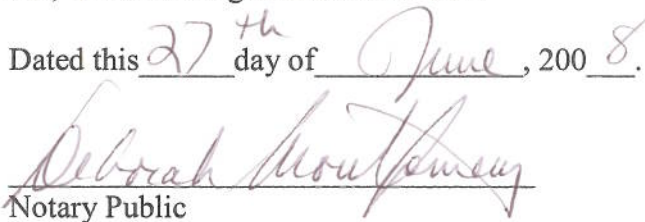 Dated this 27th day of June, 2008.
Deborah Montgomery
Notary Public